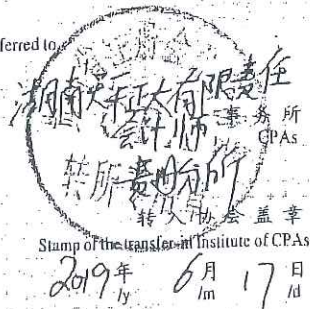 ferred to
湖南天平正大有限责任
会计师事务所
CPAs
转所贵州分所
转入协会盖章
Stamp of the transfer-in Institute of CPAs
2019年 6月 17日
/y /m /d